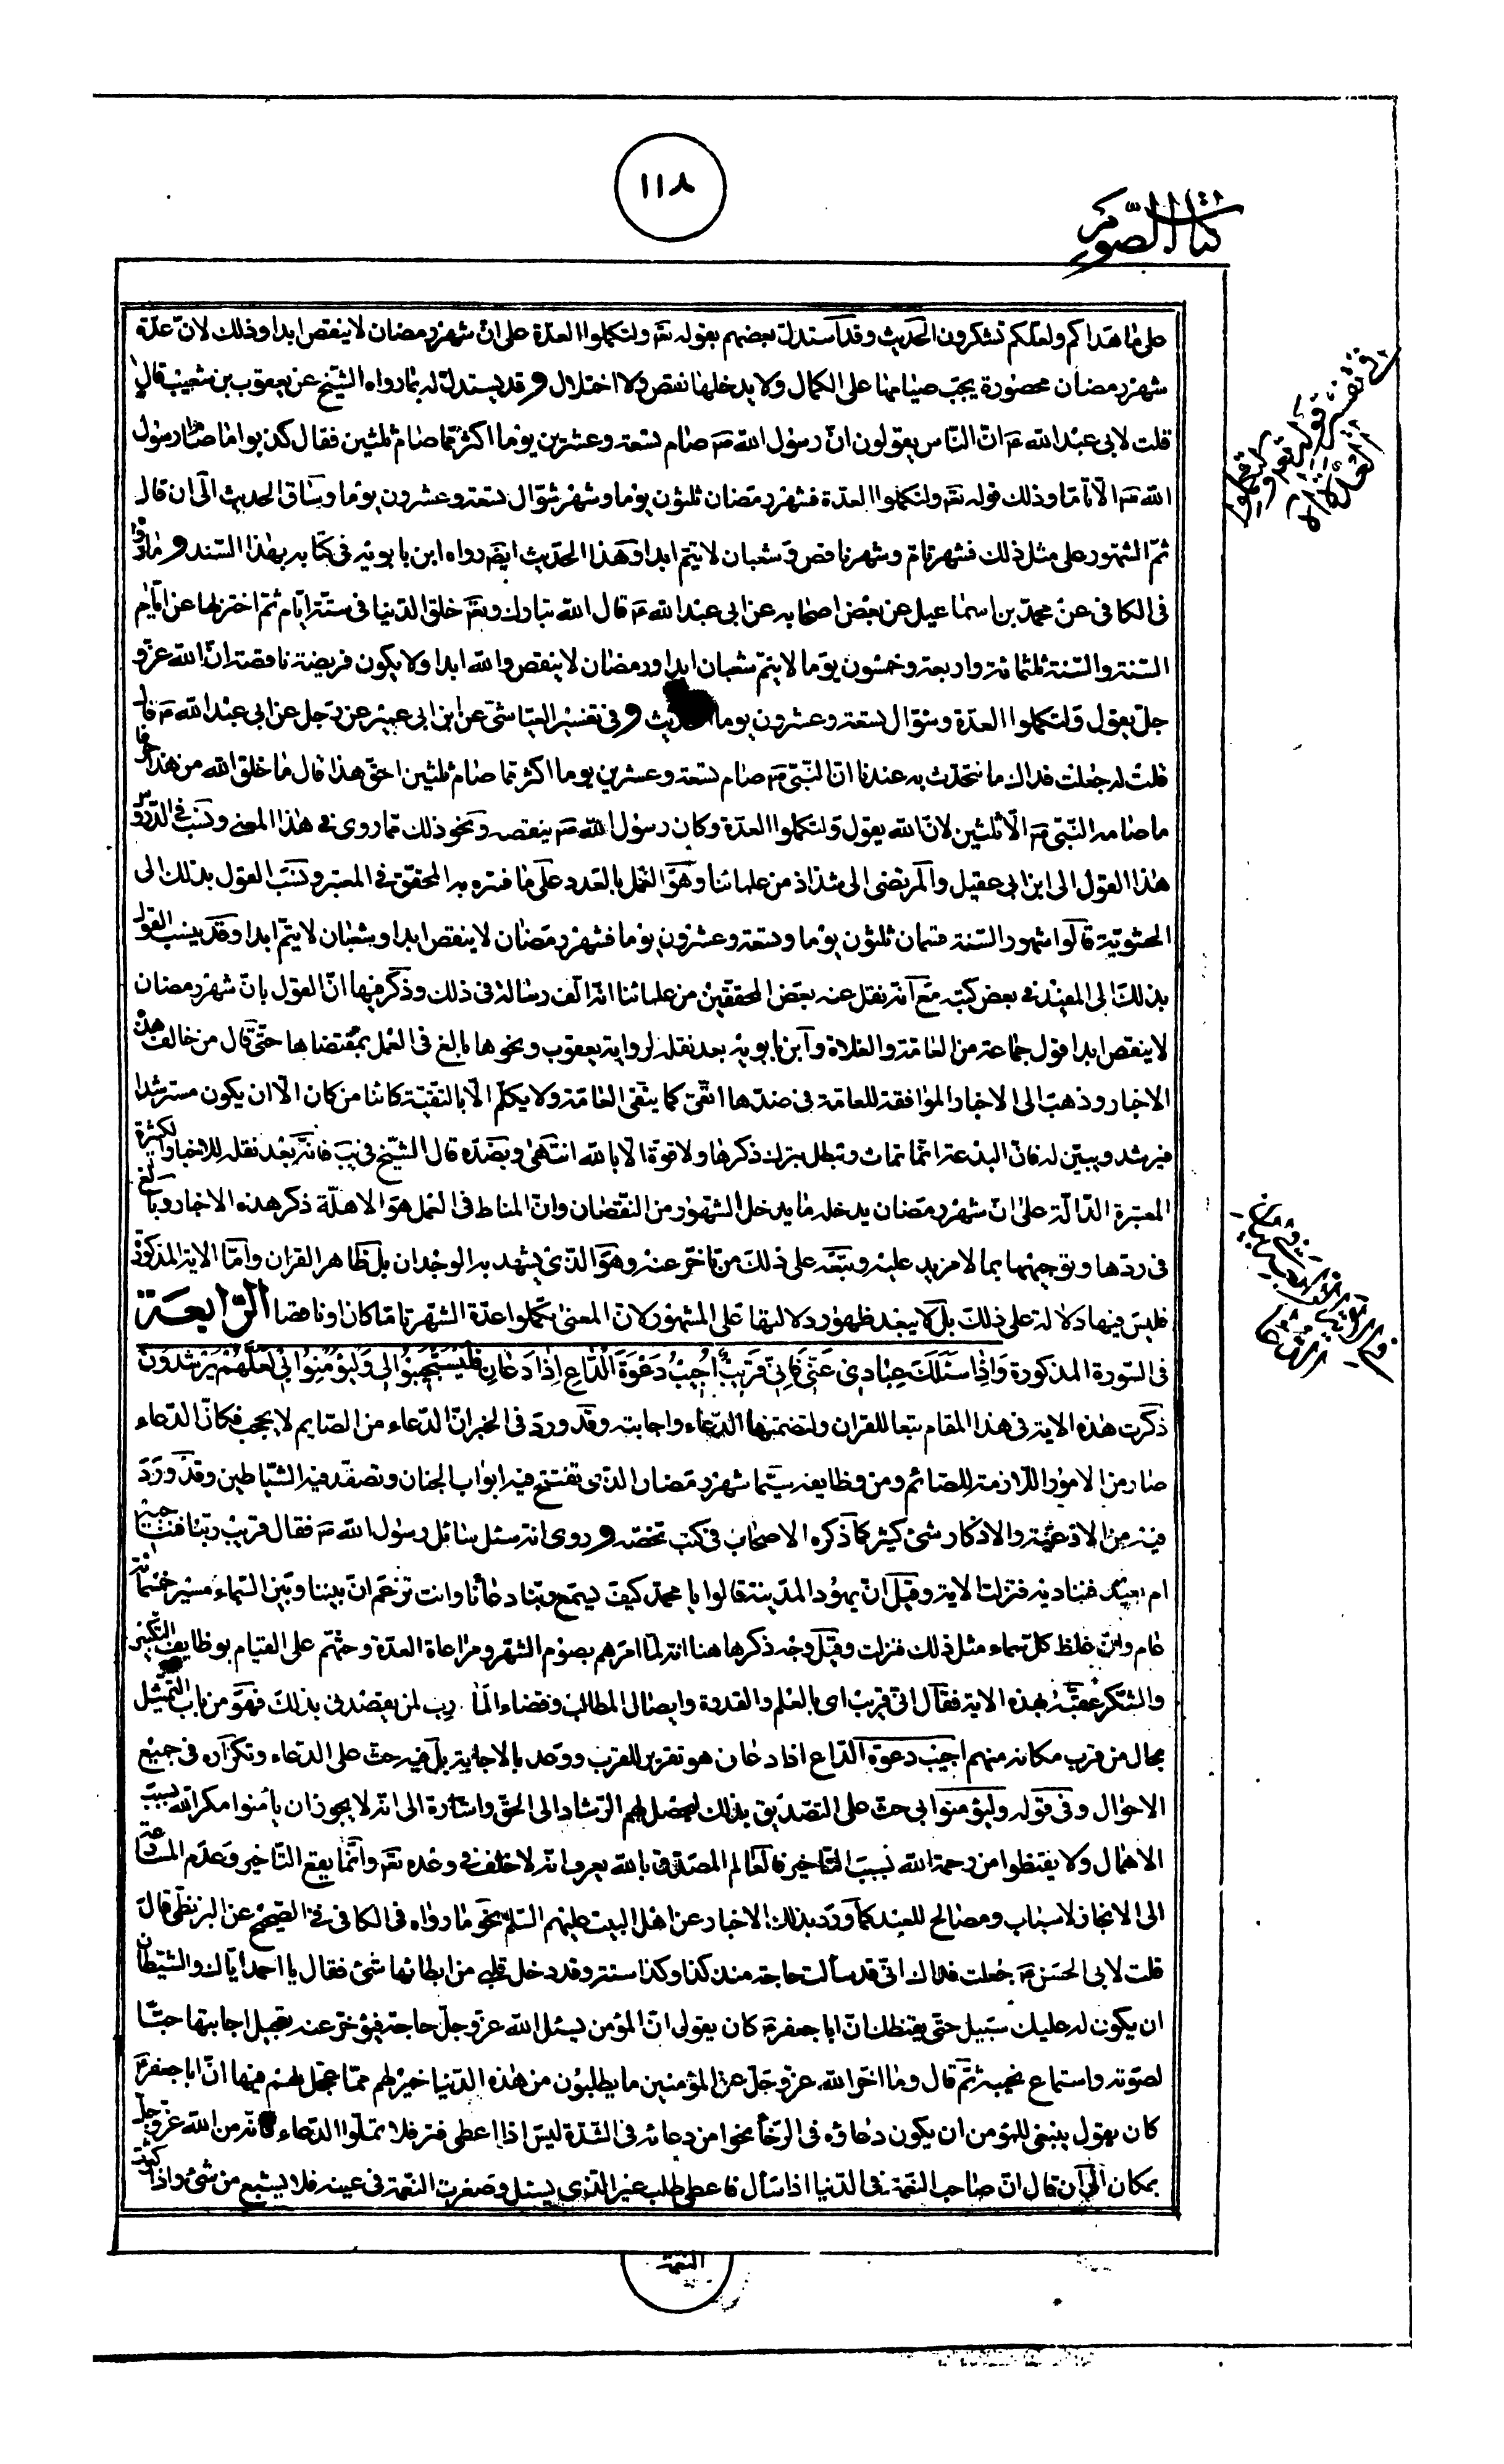 ١١٨
كتاب الصوم
على ما هداكم ولعلكم تشكرون الحديث وقد استدل بعضهم بقوله تعۤ ولتكملوا العدة على ان شهر رمضان لا ينقص ابدا وذلك لان عدة
شهر رمضان محصورة يجب صيامها على الكمال ولا يدخلها نقص ولا اختلال وقد يستدل له بما رواه الشيخ عن يعقوب بن شعيب قال
قلت لابى عبد الله عۤ ان الناس يقولون ان رسول الله صۤ صام تسعة وعشرين يوما اكثر مما صام ثلثين فقال كذبوا ما صام رسول
الله صۤ الا تاما وذلك قوله تعۤ ولتكملوا العدة فشهر رمضان ثلثون يوما وشهر شوال تسعة وعشرون يوما وساق الحديث الى ان قال
ثم الشهور على مثل ذلك فشهر تام وشهر ناقص وشعبان لا يتم ابدا وهذا الحديث ايضۤ رواه ابن بابويه فى كتابه بهذا السند وما رواه
فى الكافى عن محمد بن اسماعيل عن بعض اصحابه عن ابى عبد الله عۤ قال الله تبارك وتعۤ خلق الدنيا فى ستة ايام ثم اختزلها عن ايام
السنة والسنة ثلثمائة واربعة وخمسون يوما لا يتم شعبان ابدا ورمضان لا ينقص والله ابدا ولا يكون فريضة ناقصة ان الله عز و
جل يقول ولتكملوا العدة وشوال تسعة وعشرون يوما الحديث وفى تفسير العياشى عن ابن ابى عمير عن رجل عن ابى عبد الله عۤ قال
قلت له جعلت فداك ما نتحدث به عندنا ان النبى صۤ صام تسعة وعشرين يوما اكثر مما صام ثلثين احق هذا قال ما خلق الله من هذا حرفا
ما صامه النبى صۤ الا ثلثين لان الله يقول ولتكملوا العدة وكان رسول الله صۤ ينقصه ونحو ذلك مما روى فى هذا المعنى ونسب فى الدروس
هذا القول الى ابن ابى عقيل والمرتضى الى شذاذ من علمائنا وهو العمل بالعدد على ما فسره به المحقق فى المعتبر ونسب القول بذلك الى
الحشوية قالوا شهور السنة قسمان ثلثون يوما وتسعة وعشرون يوما فشهر رمضان لا ينقص ابدا وشعبان لا يتم ابدا وقد ينسب القول
بذلك الى المفيد فى بعض كتبه مع انه نقل عنه بعض المحققين من علمائنا انه الف رسالة فى ذلك وذكر فيها ان القول بان شهر رمضان
لا ينقص ابدا قول جماعة من العامة والغلاة وابن بابويه بعد نقله لرواية يعقوب ونحوها بالغ فى العمل بمقتضاها حتى قال من خالف هذه
الاخبار وذهب الى الاخبار الموافقة للعامة فى ضدها اتقى كما يتقى العامة ولا يكلم الا بالتقية كائنا من كان الا ان يكون مسترشدا
فيرشد ويبين له فان البدعة انما تماث وتبطل بترك ذكرها ولا قوة الا بالله انتهى وبضده قال الشيخ فى يب فانه بعد نقله للاخبار الكثيرة
المعتبرة الدالة على ان شهر رمضان يدخله ما يدخل الشهور من النقصان وان المناط فى العمل هو الاهلة ذكر هذه الاخبار وبالغ
فى ردها وتوجيهها بما لا مزيد عليه وتبعه على ذلك من تاخر عنه وهو الذى يشهد به الوجدان بل ظاهر القران واما الاية المذكورة
فليس فيها دلالة على ذلك بل لا يبعد ظهور دلالتها على المشهور لان المعنى تكملوا عدة الشهر تاما كان او ناقصا الرابعة
فى السورة المذكورة وَاِذَا سَئَلَكَ عِبَادِى عَنِّى فَاِنِّى قَرِيبٌ اُجِيبُ دَعْوَةَ الدَّاعِ اِذَا دَعَانِ فَلْيَسْتَجِيبُوا لِى وَلْيُؤْمِنُوا بِى لَعَلَّهُمْ يَرْشُدُونَ
ذكرت هذه الاية فى هذا المقام تبعا للقران ولتضمنها الدعاء واجابته وقد ورد فى الخبر ان الدعاء من الصايم لا يحجب فكان الدعاء
صار من الامور اللازمة للصائم ومن وظايفه سيما شهر رمضان الذى تفتتح فيه ابواب الجنان وتصفد فيه الشياطين وقد ورد
فيه من الادعية والاذكار شئ كثير كما ذكره الاصحاب فى كتب تخصه وروى انه سئل سائل رسول الله صۤ فقال قريب ربنا فنناجيه
ام بعيد فنناديه فنزلت الاية وقيل ان يهود المدينة قالوا يا محمد كيف يسمع ربنا دعائنا وانت تزعم ان بيننا وبين السماء مسير خمسمائة
عام وان غلظ كل سماء مثل ذلك فنزلت وقيل وجه ذكرها هنا انه لما امرهم بصوم الشهر ومراعاة العدة وحثهم على القيام بوظايف التكبير
والشكر عقبه بهذه الاية فقال انى قريب اى بالعلم والقدرة وايصال المطالب وقضاء المآرب لمن يقصدنى بذلك فهو من باب التمثيل
بحال من قرب مكانه منهم اجيب دعوة الداع اذا دعان هو تقرير للقرب ووعد بالاجابة بل فيه حث على الدعاء وتكراره فى جميع
الاحوال وفى قوله وليؤمنوا بى حث على التصديق بذلك ليحصل لهم الرشاد الى الحق واشارة الى انه لا يجوز ان يأمنوا مكر الله بسبب
الاهمال ولا يقنطوا من رحمة الله بسبب التاخير فالعالم المصدق بالله يعرف انه لا خلف فى وعده تعۤ وانما يقع التاخير وعدم المسارعة
الى الانجاز لاسباب ومصالح للعبد كما ورد بذلك الاخبار عن اهل البيت عليهم السلم نحو ما رواه فى الكافى فى الصحيح عن البزنطى قال
قلت لابى الحسن عۤ جعلت فداك انى قد سألت حاجة منذ كذا وكذا سنة وقد دخل قلبى من ابطائها شئ فقال يا احمد اياك والشيطان
ان يكون له عليك سبيل حتى يقنطك ان ابا جعفر عۤ كان يقول ان المؤمن ليسئل الله عز وجل حاجة فيؤخر عنه تعجيل اجابتها حبا
لصوته واستماع نحيبه ثم قال وما اخر الله عز وجل عن المؤمنين ما يطلبون من هذه الدنيا خير لهم مما عجل لهم فيها ان ابا جعفر عۤ
كان يقول ينبغى للمؤمن ان يكون دعاؤه فى الرخا نحوا من دعائه فى الشدة ليس اذا اعطى فتر فلا تملوا الدعاء فانه من الله عز وجل
بمكان الى ان قال ان صاحب النعمة فى الدنيا اذا سأل فاعطى طلب غير الذى يسئل وصغرت النعمة فى عينه فلا يشبع من شئ واذا كثرت
النعمة
فى تفسير قوله تعۤ ولتكملوا
العدة الاية